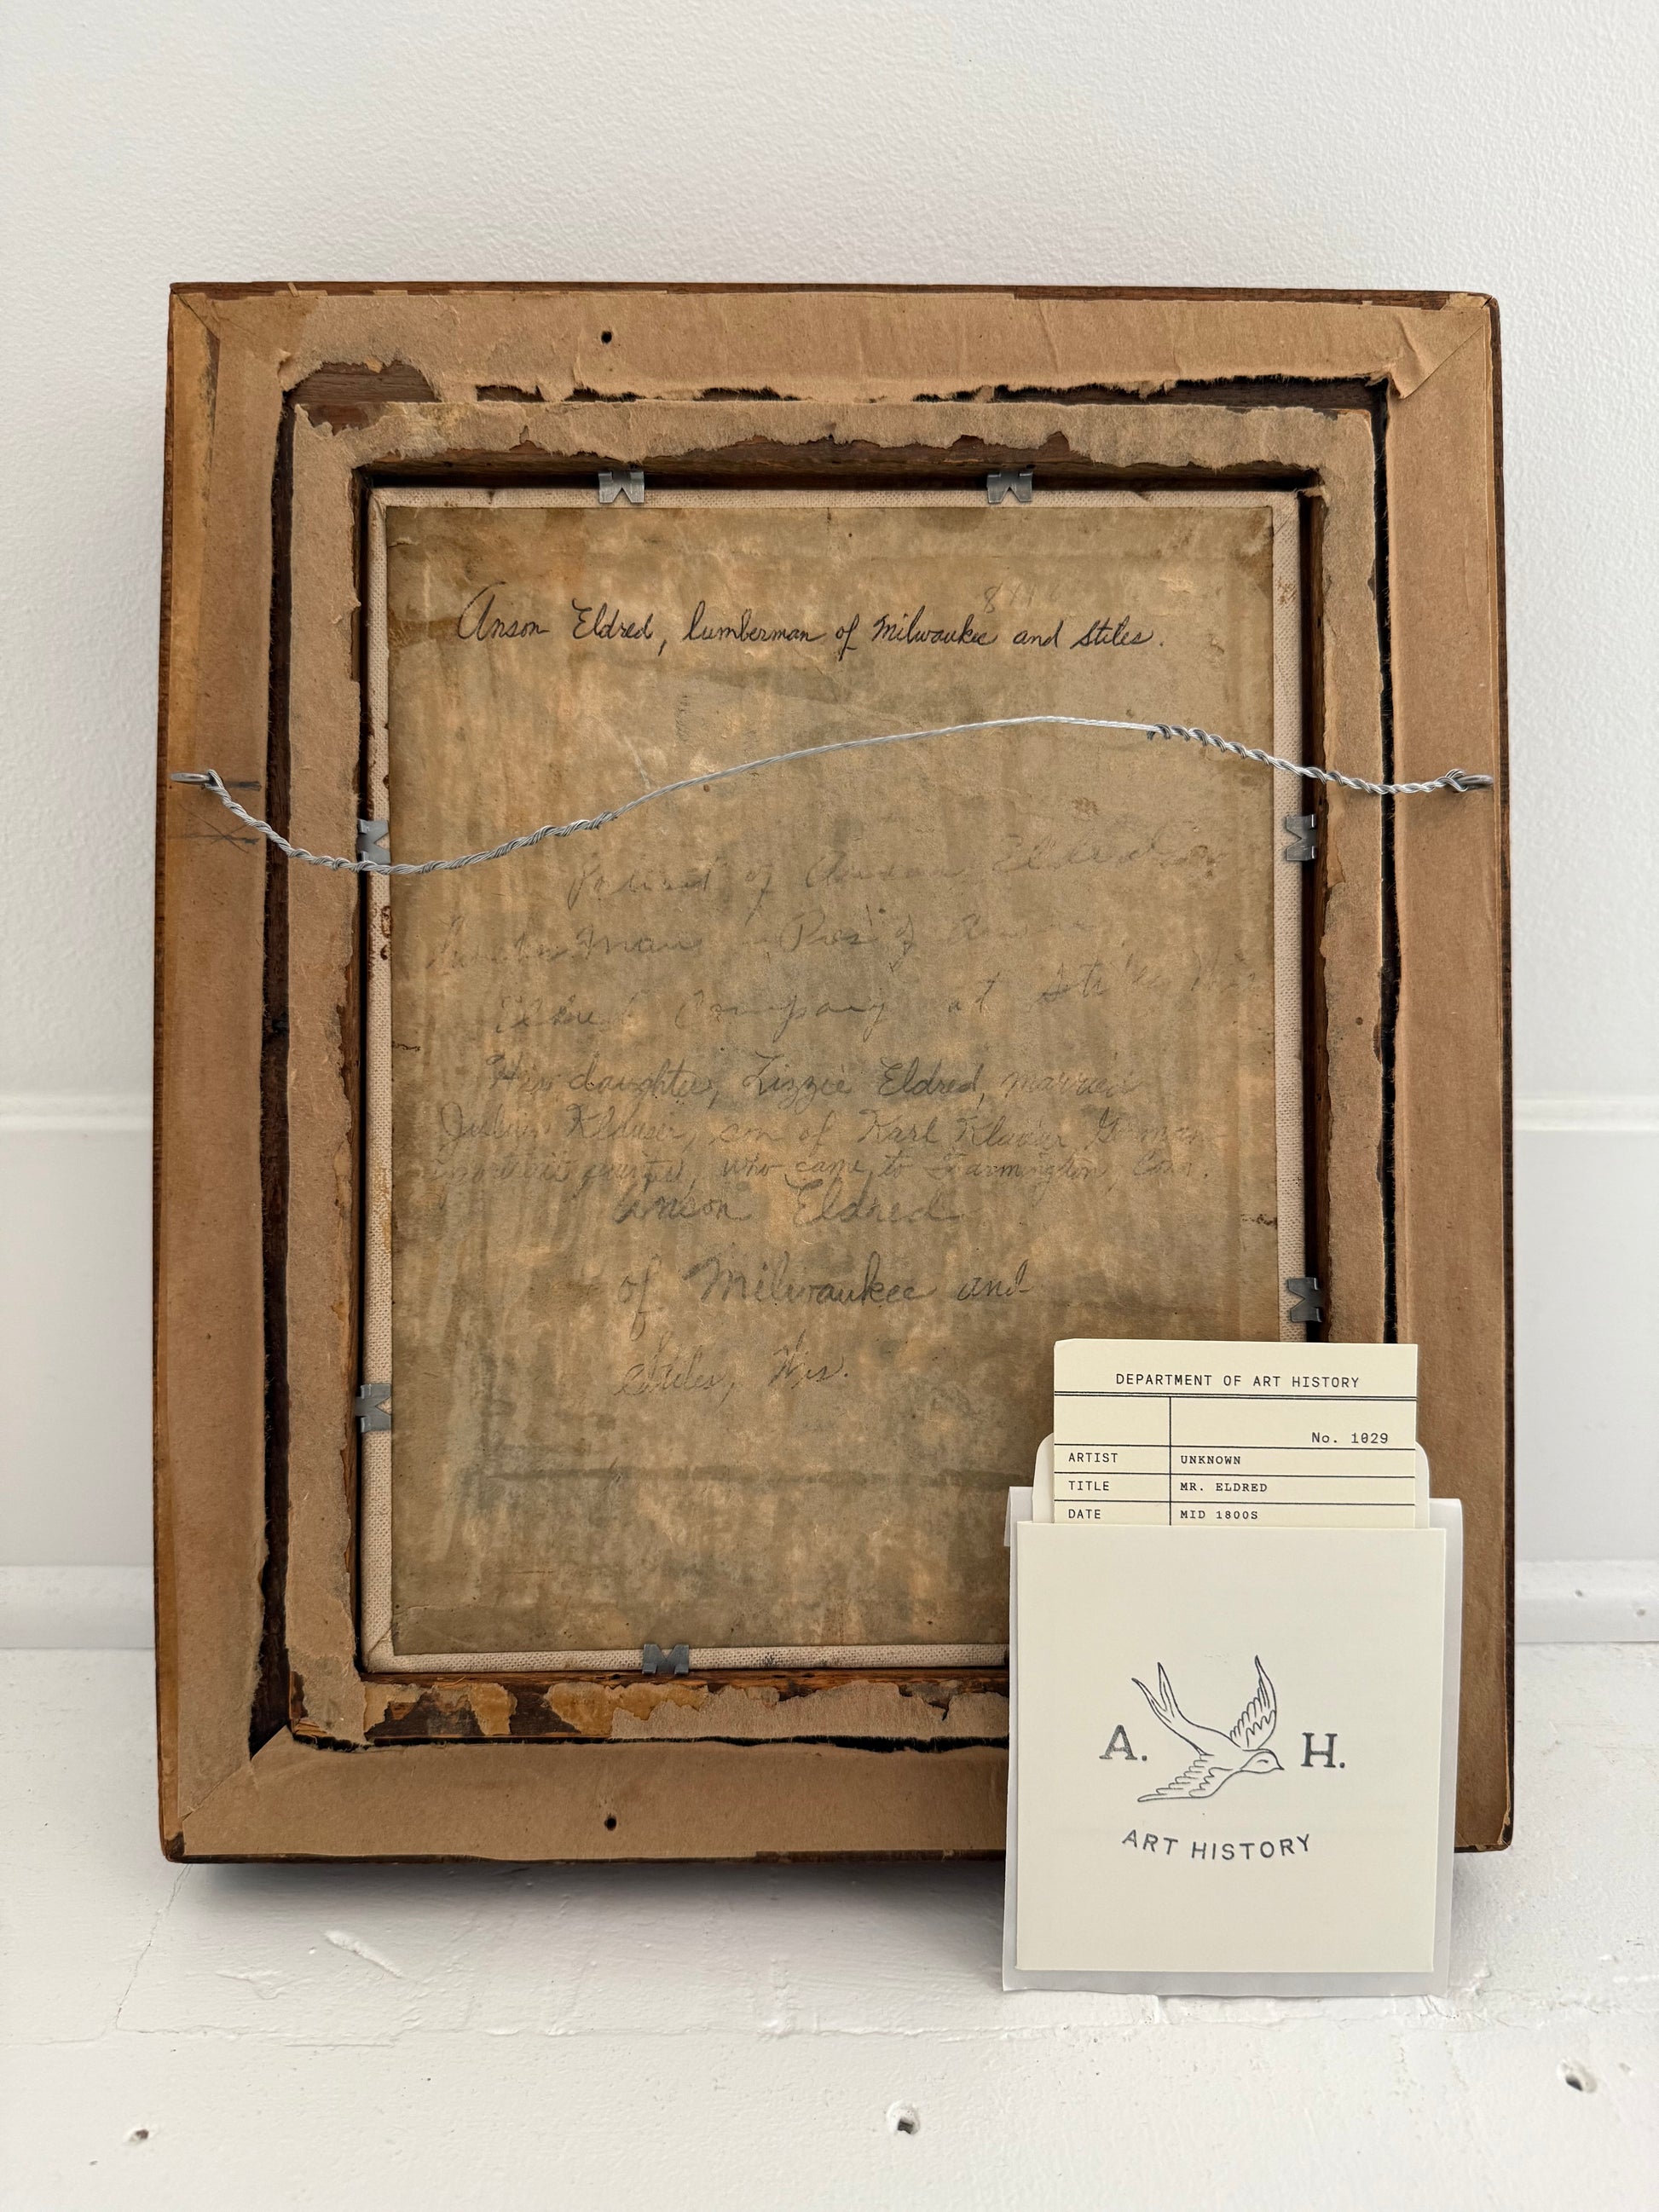 Anson Eldred, lumberman of Milwaukee and Stiles.
of Anson Eldred
Pres of Anson
Eldred Company at Stiles Wis
His daughter, Lizzie Eldred, married
Julius Klauser, son of Karl Klauser German
portrait painter, who came to Farmington, Conn.
Anson Eldred
of Milwaukee and
Stiles, Wis.
DEPARTMENT OF ART HISTORY
No. 1029
ARTIST UNKNOWN
TITLE MR. ELDRED
DATE MID 1800S
A. H.
ART HISTORY